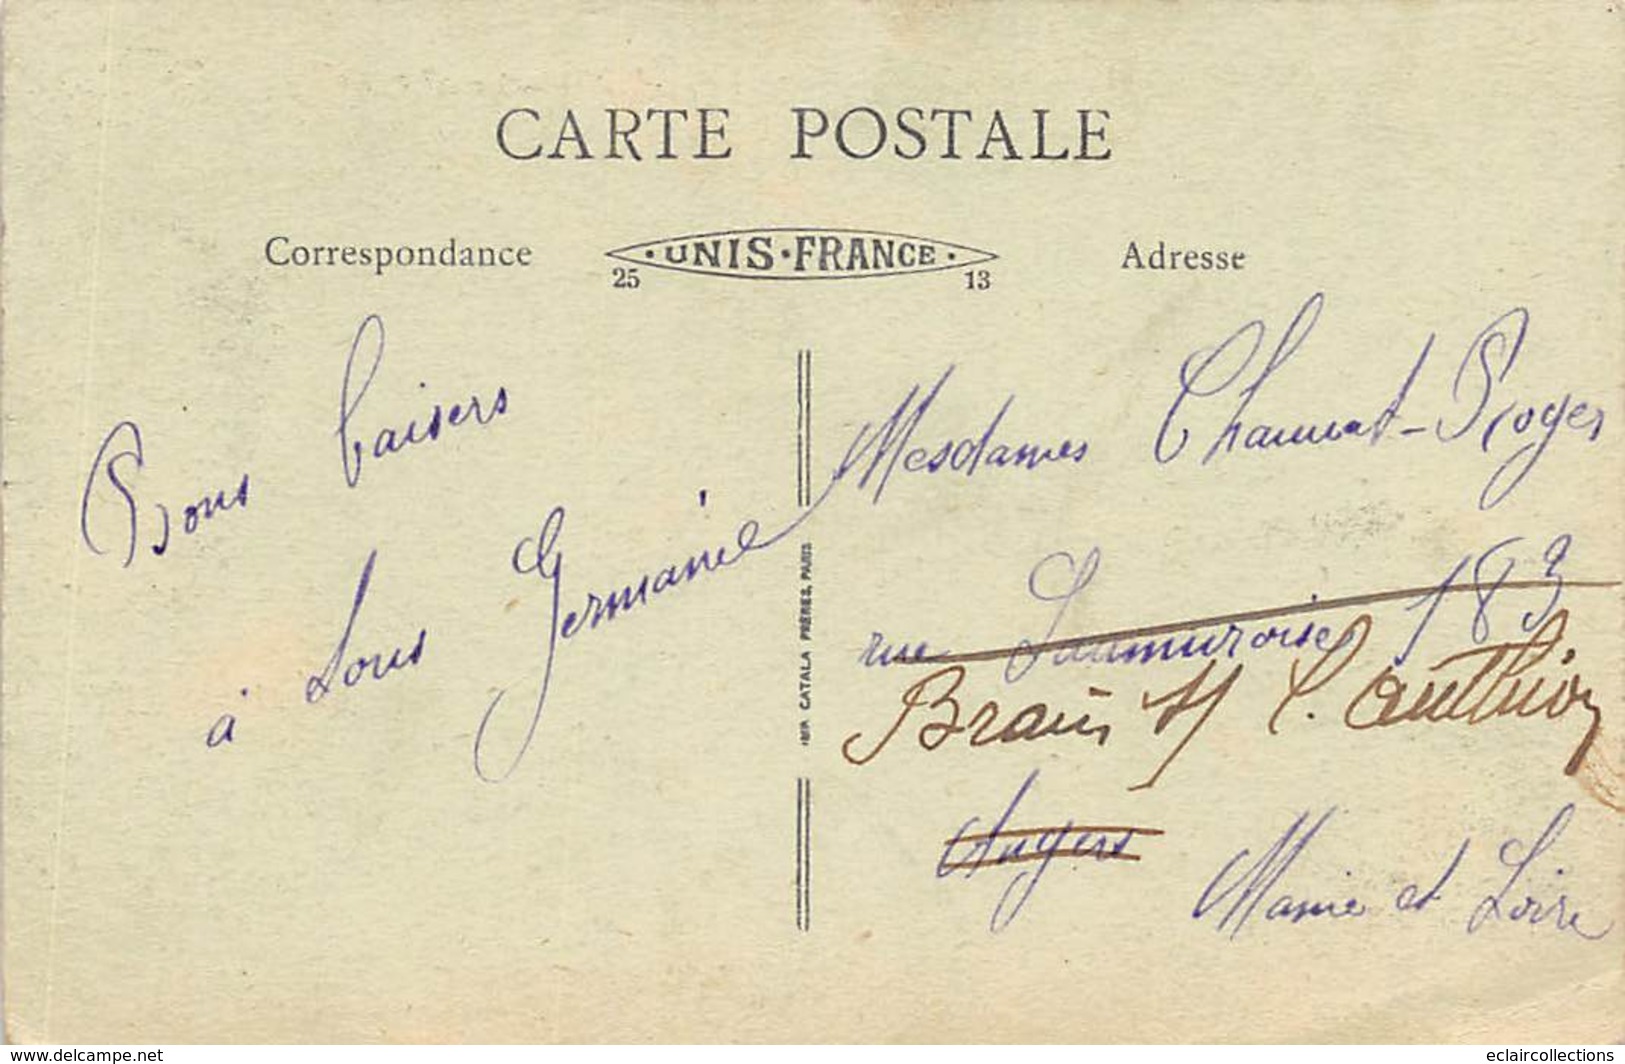 CARTE POSTALE
Correspondance
·UNIS·FRANCE·
25 13
Adresse
Bons baisers
à tous Germaine
Mesdames Chauvat-Roger
rue Saumuroise 183
Brain s/ l'authion
Angers
Maine et Loire
IMP. CATALA FRÈRES, PARIS
www.delcampe.net
eclaircollections